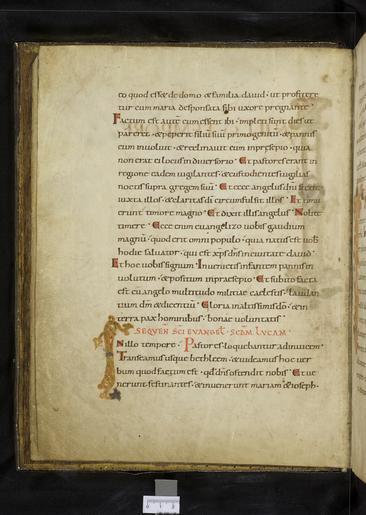 eo quod esset de domo & familia dauid · ut profitere
tur cum maria desponsata sibi uxore pregnante ·
Factum est autē cum essent ibi · impleti sunt dies ut
pareret · & peperit filiū suū primogenitū · & pannis
eum inuoluit · & reclinauit eum in presepio · quia
non erat ei locus in diuersorio · Et pastores erant in
regione eadem uigilantes · & custodientes uigilias
noctis supra gregem suū · Et ecce angelus dn̄i stetit
iuxta illos · & claritas dī circumfulsit illos · Et timu
erunt timore magno · Et dixit illis angelus · Nolite
timere · Ecce enim euangelizo uobis gaudium
magnū · quod erit omni populo · quia natus est uob
hodie saluator · qui est xp̄s dn̄s in ciuitate dauid ·
Et hoc uobis signum · Inuenietis infantem pannis in
uolutum · & positum in praesepio · Et subito facta
est cū angelo multitudo militiae caelestis · laudan
tium dm̄ & dicentiū · Gloria in altissimis dō · & in
terra pax hominibus · bonae uoluntatis ·
SEQUEN̄ SC̄I EVANGEL̄ · SCD̄M LVCAM ·
In illo tempore · Pastores loquebantur adinuicem ·
Transeamus usque bethleem · & uideamus hoc uer
bum quod factum est · qd̄ dn̄s ostendit nobis · Et ue
nerunt festinantes · & inuenerunt mariam & ioseph ·